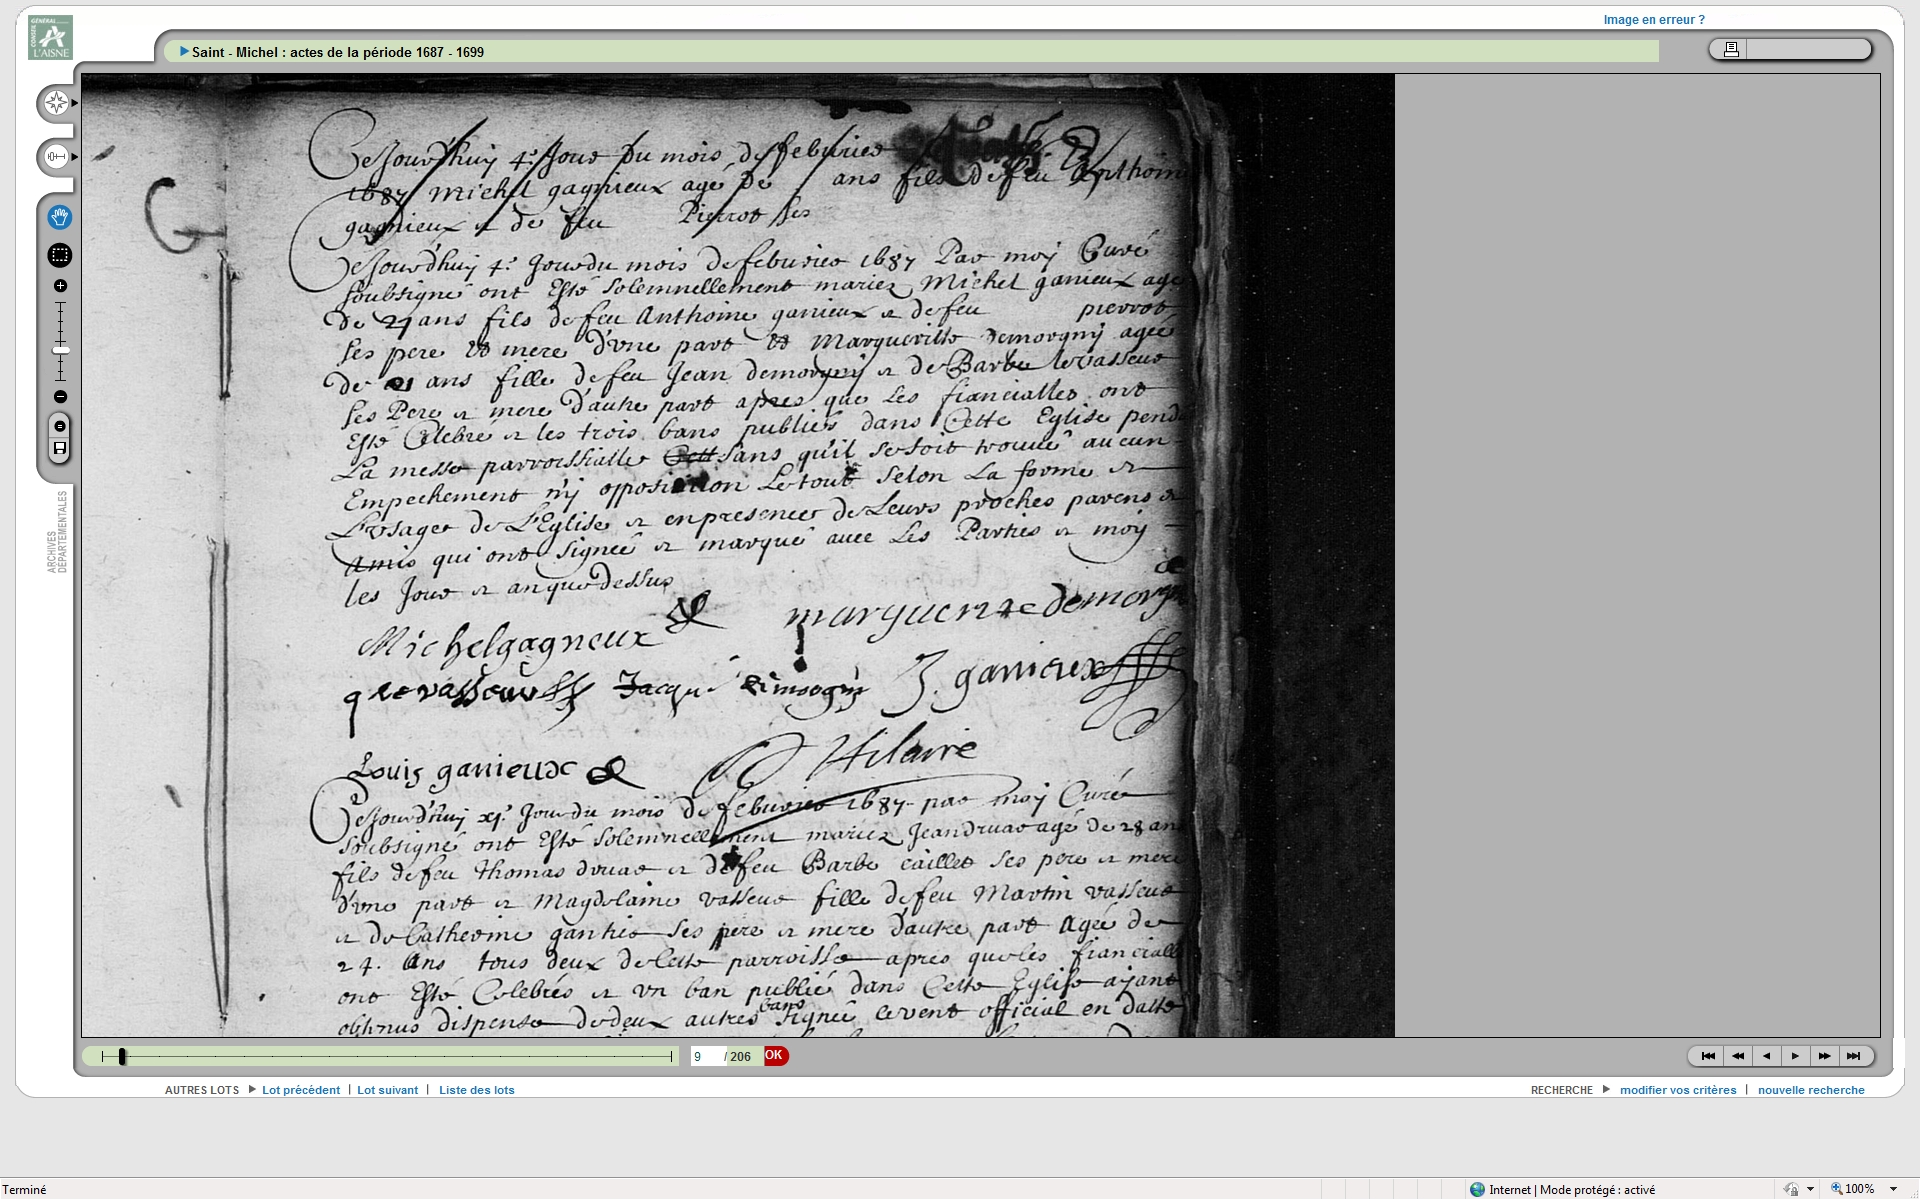 Image en erreur ?
CONSEIL GÉNÉRAL
L'AISNE
Saint - Michel : actes de la période 1687 - 1699
ARCHIVES
DÉPARTEMENTALES
G
Cejourdhuy 4e Jour du mois de feburier
1687 Michel gagnieux agé de ans fils de feu Anthoine
gagnieux et de feu Pierrot ses
Cejourdhuy 4e Jour du mois de feburier 1687 Par moy Curé
soubsigné ont Esté solemnellement mariez Michel ganieux agé
de 27 ans fils de feu Anthoine ganieux et de feu pierrot
ses pere et mere d'une part et Margueritte demorgny agée
de 21 ans fille de feu Jean demorgny et de Barbe levasseur
ses Pere et mere d'autre part apres que les fiancialles ont
Esté Celebré et les trois bans publiés dans Cette Eglise pend
La messe parroissialle sans qu'il se soit trouvé aucun
Empechement ny opposition Le tout selon La forme et
L'usage de L'Eglise et en presence de Leurs proches parens et
amis qui ont signé et marqué avec Les Parties et moy
les Jour et an que dessus
Michel gagneux marguerite de morgn
q levasseur Jacque demorgny J. ganieux
Louis ganieux Hilaire
Cejourdhuy xje Jour du mois de feburier 1687 par moy Curé
soubsigné ont Esté solemnellement mariez Jean druar agé de 28 ans
fils de feu Thomas druar et de feu Barbe caillet ses pere et mere
d'une part et Magdelaine vasseur fille de feu Martin vasseur
et de Catherine gantier ses pere et mere d'autre part Agée de
24. Ans tous deux de Cette parroisse apres que les fiancialle
ont Esté Celebrés et un ban publié dans Cette Eglise ayant
obtenus dispense de deux autres bans signée levent official en datte
9 / 206 OK
AUTRES LOTS Lot précédent | Lot suivant | Liste des lots
RECHERCHE modifier vos critères | nouvelle recherche
Terminé
Internet | Mode protégé : activé
100%